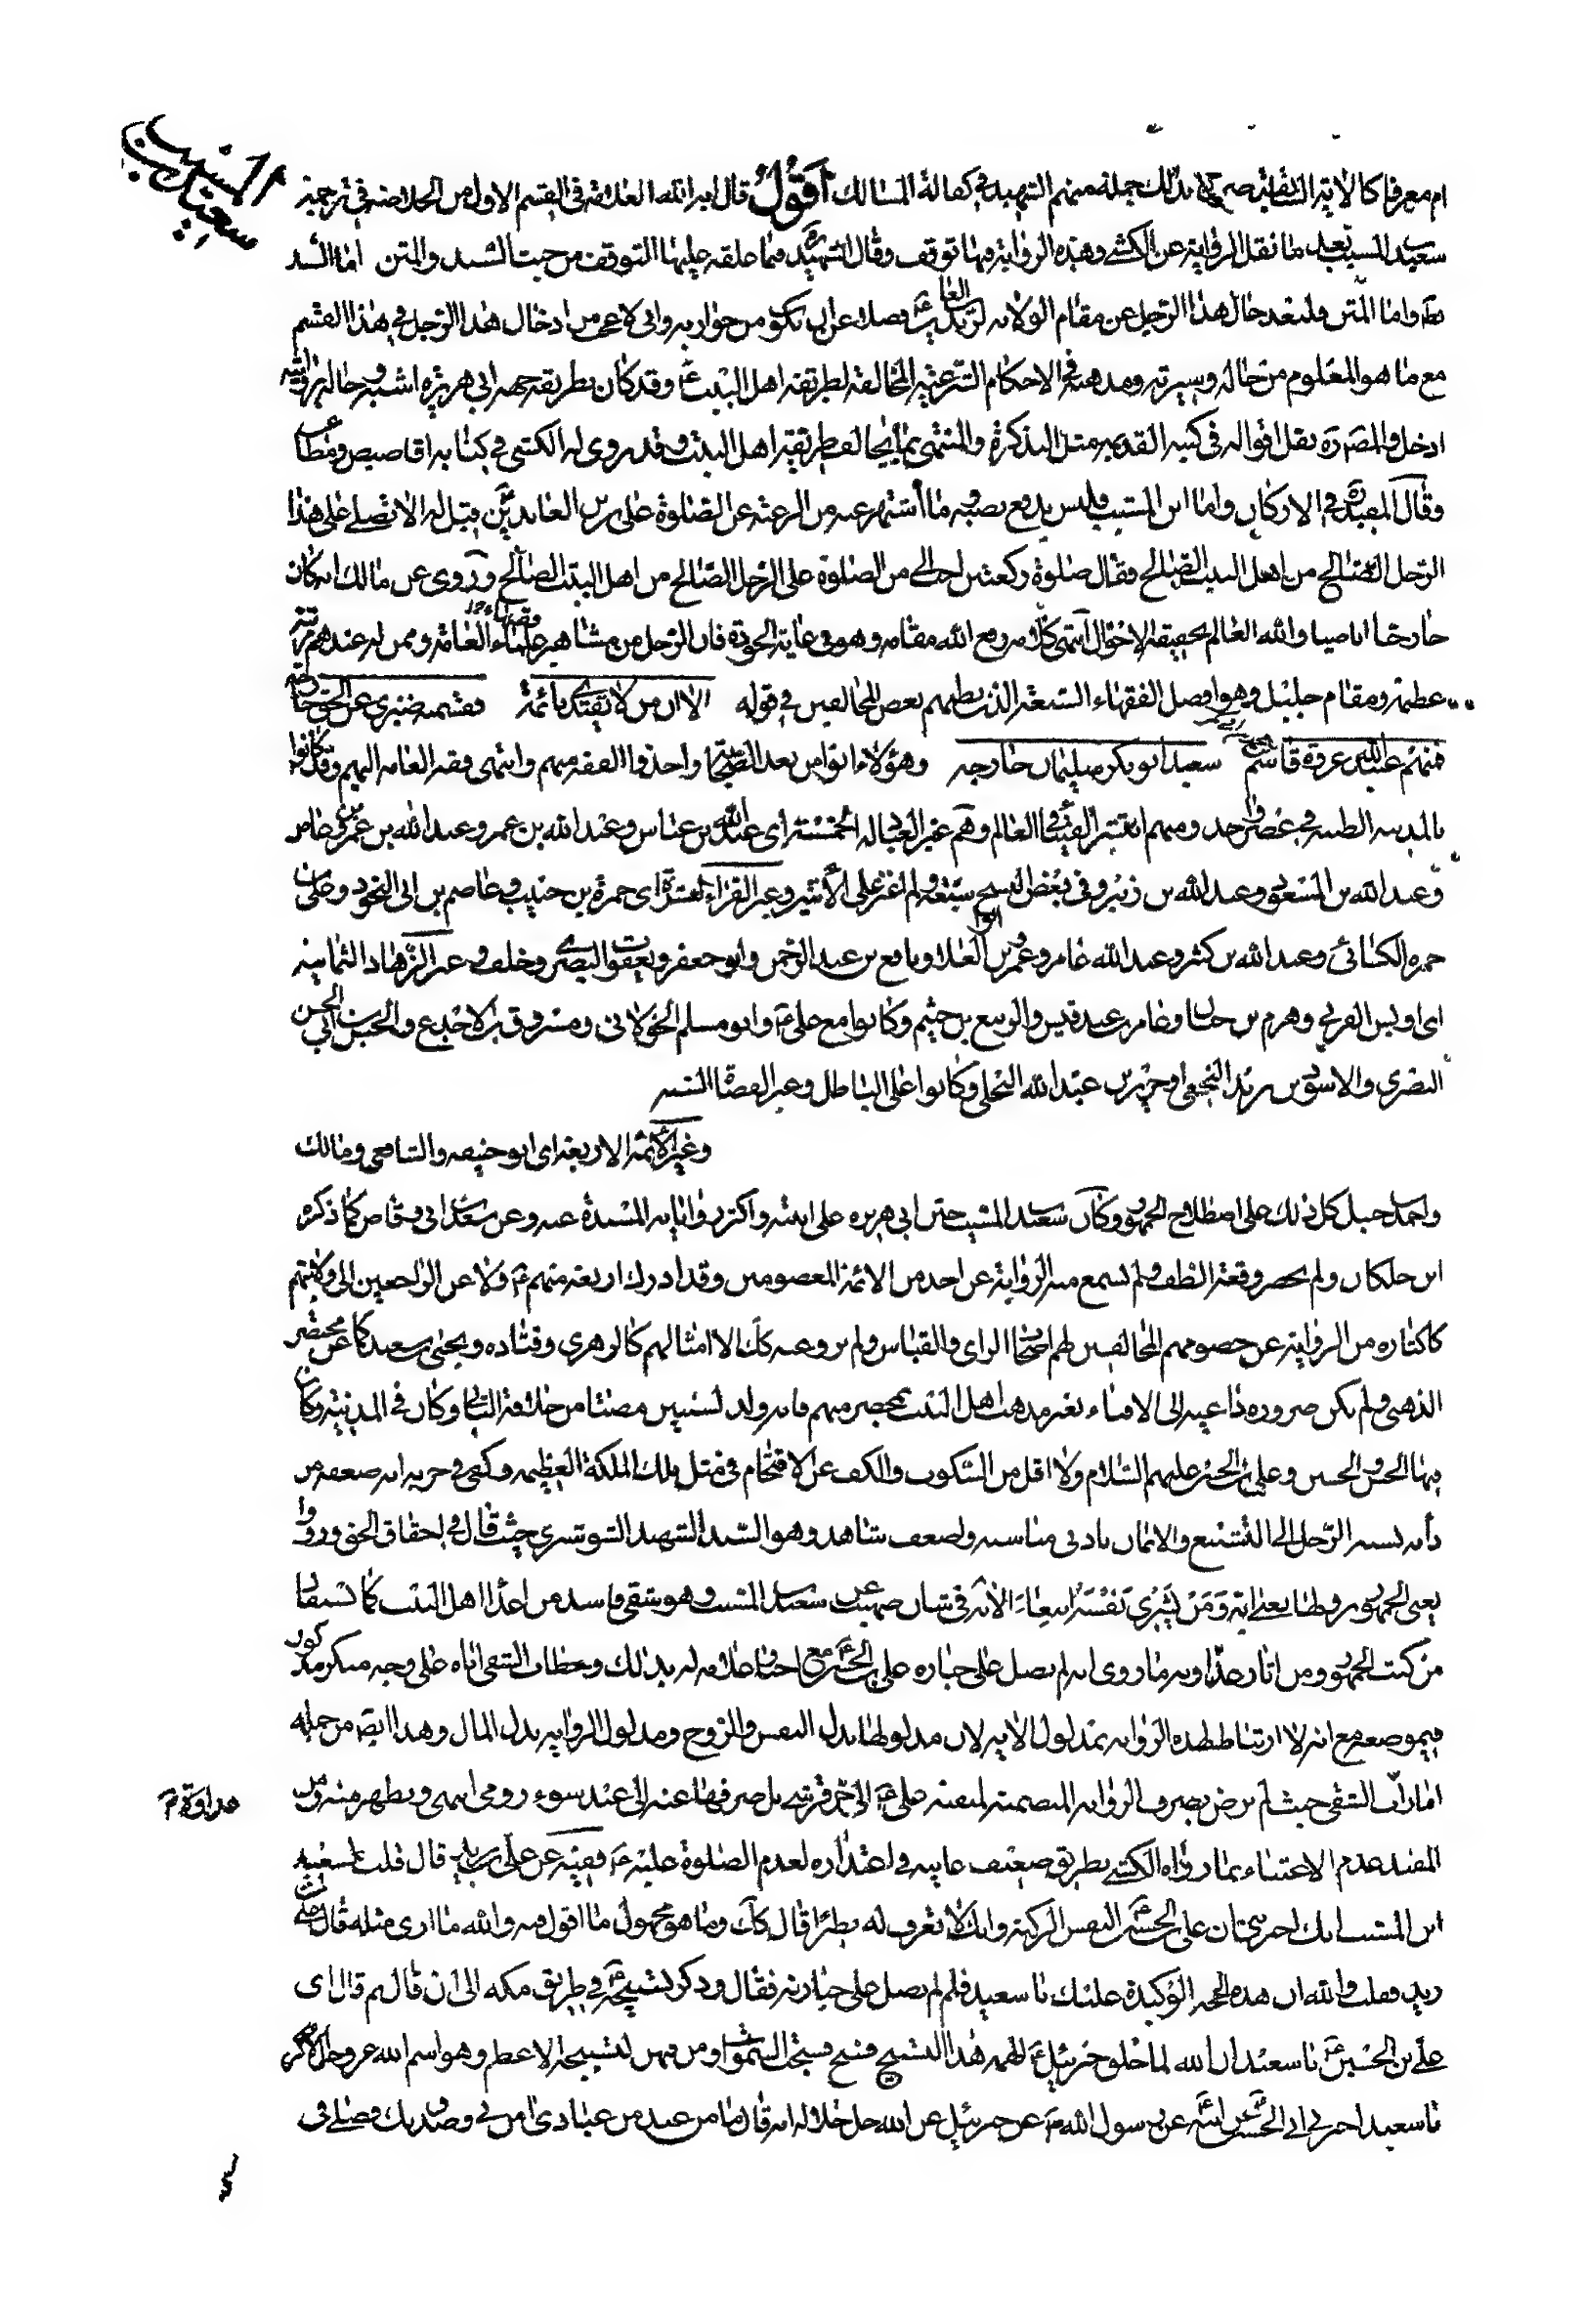 سعيد بن المسيب
ام معرفا كالآية السابقة صرح بذلك جملة منهم الشهيد في كفالة المسالك أقول قال آية الله العلامة في القسم الاول من الخلاصة في ترجمة
سعيد المسيب بعد ما نقل الرواية عن الكشي وهذه الرواية فيها توقف وقال الشهيد ره فيما علقه عليها التوقف من حيث السند والمتن اما السند
فظ واما المتن فلبعد حال هذا الرجل عن مقام الولاية لزين العابدين ع فضلا عن ان يكون من حواريه واني لاعجب من ادخال هذا الرجل في هذا القسم
مع ما هو المعلوم من حاله وسيرته ومذهبه في الاحكام الشرعية المخالفة لطريقة اهل البيت ع وقد كان بطريقة جهة ابي هريرة اشبه وحاله بروايته
ادخل والمصنف ره نقل اقواله في كتبه القديمة مثل التذكرة والمنتهى بما يخالف طريقة اهل البيت وقد روى له الكشي في كتابه اقاصيص ومطاعن
وقال المفيد ره في الاركان واما ابن المسيب فليس يدفع نصبه وما اشتهر عنه من الرغبة عن الصلوة على زين العابدين ع قيل له الا تصلي على هذا
الرجل الصالح من اهل البيت الصالح فقال صلوة ركعتين احب الي من الصلوة على الرجل الصالح من اهل البيت الصالح وروى عن مالك انه كان
خارجيا اباضيا والله العالم بحقيقة الاحوال انتهى كلامه رفع الله مقامه وهو في غاية الجودة فان الرجل من مشاهير علماء العامة وفقهائهم وممن له عندهم مرتبة
عظيمة ومقام جليل وهو افضل الفقهاء السبعة الذين نظمهم بعض المخالفين في قوله الا ان من لا يقتدى بائمة فقسمته ضيزى عن الحق خارجة
فمنهم عبيد الله عروة قاسم سعيد ابو بكر سليمان خارجه وهؤلاء اتوا من بعد الصحابة واخذوا الفقه منهم وانتهى فقه العامة اليهم وقد كانوا
بالمدينة الطيبة في عصر واحد ومنهم انتشر الفتيا في العالم وهم غير العبادلة الخمسة اي عبد الله بن عباس وعبد الله بن عمر وعبد الله بن عمرو بن عاص
وعبد الله بن المسعود وعبد الله بن زبير وفي بعض النسخ سبعة ولم اعثر على الاثنين وغير القراء العشرة اي حمزة بن حبيب وعاصم بن ابي النجود وعلي بن
حمزه الكسائي وعبد الله بن كثير وعبد الله عامر وابو عمرو بن العلاء ونافع بن عبد الرحمن وابو جعفر ويعقوب البصري وخلف وغير الزهاد الثمانية
اي اويس القرني وهرم بن حيان وعامر بن عبد قيس والربيع بن خيثم وكانوا مع علي ع وابو مسلم الخولاني ومسروق بن الاجدع والحسن بن ابي الحسن
البصري والاسود بن يزيد النخعي او جرير بن عبد الله البجلي وكانوا على الباطل وغير القضاة الستة
وغير الائمة الاربعة اي ابو حنيفه والشافعي ومالك
واحمد حنبل كل ذلك على اصطلاح الجمهور وكان سعيد المسيب ختن ابي هريره على ابنته واكثر رواياته المسندة عنه وعن سعد ابي وقاص كما ذكره
ابن خلكان ولم يحضر وقعة الطف ولم نسمع منه الرواية عن احد من الائمة المعصومين وقد ادرك اربعة منهم ع ولا عن الراجعين الى ولايتهم
كاكثاره من الرواية عن خصومهم المخالفين لهم اصحاب الراي والقياس ولم يرو عنه كك الا امثالهم كالزهري وقتاده ويحيى بن سعيد كما عن مختصر
الذهبي ولم يكن ضرورة داعية الى الافتاء بغير مذهب اهل البيت بمحضر منهم فانه ولد لسنتين مضتا من خلافة الثاني وكان في المدينة وكان
فيها الحسن والحسين وعلي بن الحسين عليهم السلام ولا اقل من السكوت والكف عن الاقتحام في مثل تلك المهلكة العظيمة وكفى في حزبه انه ضعفه من
دأبه نسبة الرجل الى التشيع والايمان بادنى مناسبة واضعف شاهد وهو السيد الشهيد التستري حيث قال في احقاق الحق ورووا
يعني الجمهور نزولها يعني اية ومن يشري نفسه ابتغاء الاية في شان صهيب عن سعيد المسيب وهو شقي فاسد من اعداء اهل البيت كما يستفاد
من كتب الجمهور ومن اثار عداوته ما روى انه لم يصل على جنازة علي بن الحسين ع مع اخبار غلامه له بذلك وخطاب الشقي اياه على وجه منكر مذكور
في موضعه مع انه لا ارتباط لهذه الرواية بمدلول الاية لان مدلولها بذل النفس والروح ومدلول الرواية بذل المال وهذا ايضا من جملة
امارات عداوة م الشقي حيث لم يرض بصرف الرواية المتضمنة لمنقبة علي ع الى اخر قرشي بل صرفها عنه الى عبد سوء رومي انتهى ويظهر منه ومن
المفيد عدم الاعتناء بما رواه الكشي بطريق ضعيف عاميه في اعتذاره لعدم الصلوة عليه ع ففيه عن علي بن زيد قال قلت لسعيد
ابن المسيب انك اخبرتني ان علي بن الحسين ع النفس الزكية وانك لا تعرف له نظيرا قال كك وما هو مجهول ما اقول فيه والله ما اري مثله قال علي بن
زيد فقلت والله ان هذه الحجة الوكيدة عليك يا سعيد فلم لم تصل على جنازته فقال وذكر تسبيحه ع في طريق مكه الى ان قال ثم قال اي
علي بن الحسين ع يا سعيد ان الله لما خلق جبرئيل ع الهمه هذا التسبيح فسبح فسبحت السموات ومن فيهن لتسبيحه الاعظم وهو اسم الله عز وجل الاكبر
يا سعيد اخبرني ابي الحسين ع عن ابيه ع عن رسول الله ص عن جبرئيل عن الله جل جلاله انه قال ما من عبد من عبادي امن بي وصدق بك وصلى في